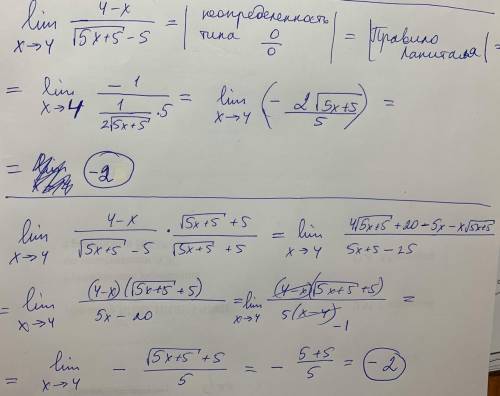 lim x→4 (4-x)/(√(5x+5) - 5) = | неопределенность типа 0/0 | = | Правило Лапиталя | =
= lim x→4 (-1)/((1/(2√(5x+5)))·5) = lim x→4 (- 2√(5x+5)/5) =
= -2
lim x→4 (4-x)/(√(5x+5) - 5) · (√(5x+5) + 5)/(√(5x+5) + 5) = lim x→4 (4√(5x+5) + 20 - 5x - x√(5x+5))/(5x+5-25)
= lim x→4 ((4-x)(√(5x+5) + 5))/(5x-20) = lim x→4 ((4-x)(√(5x+5) + 5))/(5(x-4)) -1 =
= lim x→4 - (√(5x+5) + 5)/5 = - (5+5)/5 = -2